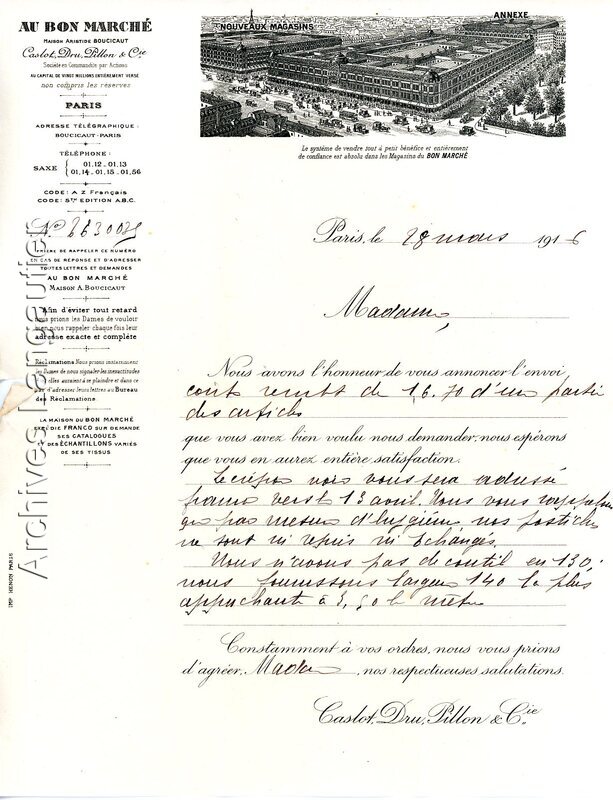 AU BON MARCHÉ
MAISON ARISTIDE BOUCICAUT
Caslot, Dru, Pillon & Cie
Société en Commandite par Actions
AU CAPITAL DE VINGT MILLIONS ENTIÈREMENT VERSÉ
non compris les reserves
PARIS
ADRESSE TÉLÉGRAPHIQUE :
BOUCICAUT-PARIS
TÉLÉPHONE :
SAXE { 01.12 - 01.13
01.14 - 01.15 - 01.56
CODE : A Z Français
CODE : 5TH EDITION A.B.C.
No
PRIÈRE DE RAPPELER CE NUMÉRO
EN CAS DE REPONSE ET D'ADRESSER
TOUTES LETTRES ET DEMANDES
AU BON MARCHÉ
MAISON A. BOUCICAUT
Afin d'éviter tout retard
nous prions les Dames de vouloir
bien nous rappeler chaque fois leur
adresse exacte et complète
Réclamations Nous prions instamment
les Dames de nous signaler les inexactitudes
dont elles auraient à se plaindre et dans ce
cas d'adresser leurs lettres au Bureau
des Réclamations.
LA MAISON DU BON MARCHÉ
EXPÉDIE FRANCO SUR DEMANDE
SES CATALOGUES
ET DES ÉCHANTILLONS VARIÉS
DE SES TISSUS
IMP HENON PARIS
Archives Lengautier
NOUVEAUX MAGASINS
ANNEXE
Le système de vendre tout à petit bénéfice et entièrement
de confiance est absolu dans les Magasins du BON MARCHÉ
Paris, le 28 mars 1916
Madame,
Nous avons l'honneur de vous annoncer l'envoi
cont remb<sup>t</sup> de 16.70 d'une partie
des articles
que vous avez bien voulu nous demander, nous espérons
que vous en aurez entière satisfaction.
Le crépon noir vous sera adressé
franco vers l 13 avril. Nous vous rappelons
que par mesure d'hygiène, nos postiches
ne sont ni repris ni échangés
Nous n'avons pas de coutil en 130,
nous fournissons largeur 140 la plus
approchante à 3,50 le mètre
Constamment à vos ordres, nous vous prions
d'agréer, Madame, nos respectueuses salutations.
Caslot, Dru, Pillon & Cie